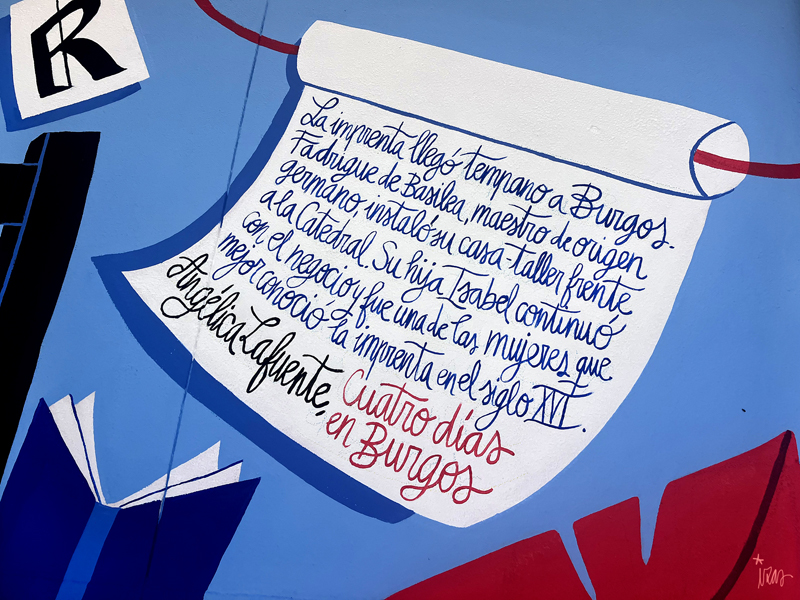 R
La imprenta llegó temprano a Burgos.
Fadrique de Basilea, maestro de origen
germano, instaló su casa-taller frente
a la Catedral. Su hija Isabel continuó
con el negocio y fue una de las mujeres que
mejor conoció la imprenta en el siglo XVI.
Angélica Lafuente,
Cuatro días
en Burgos